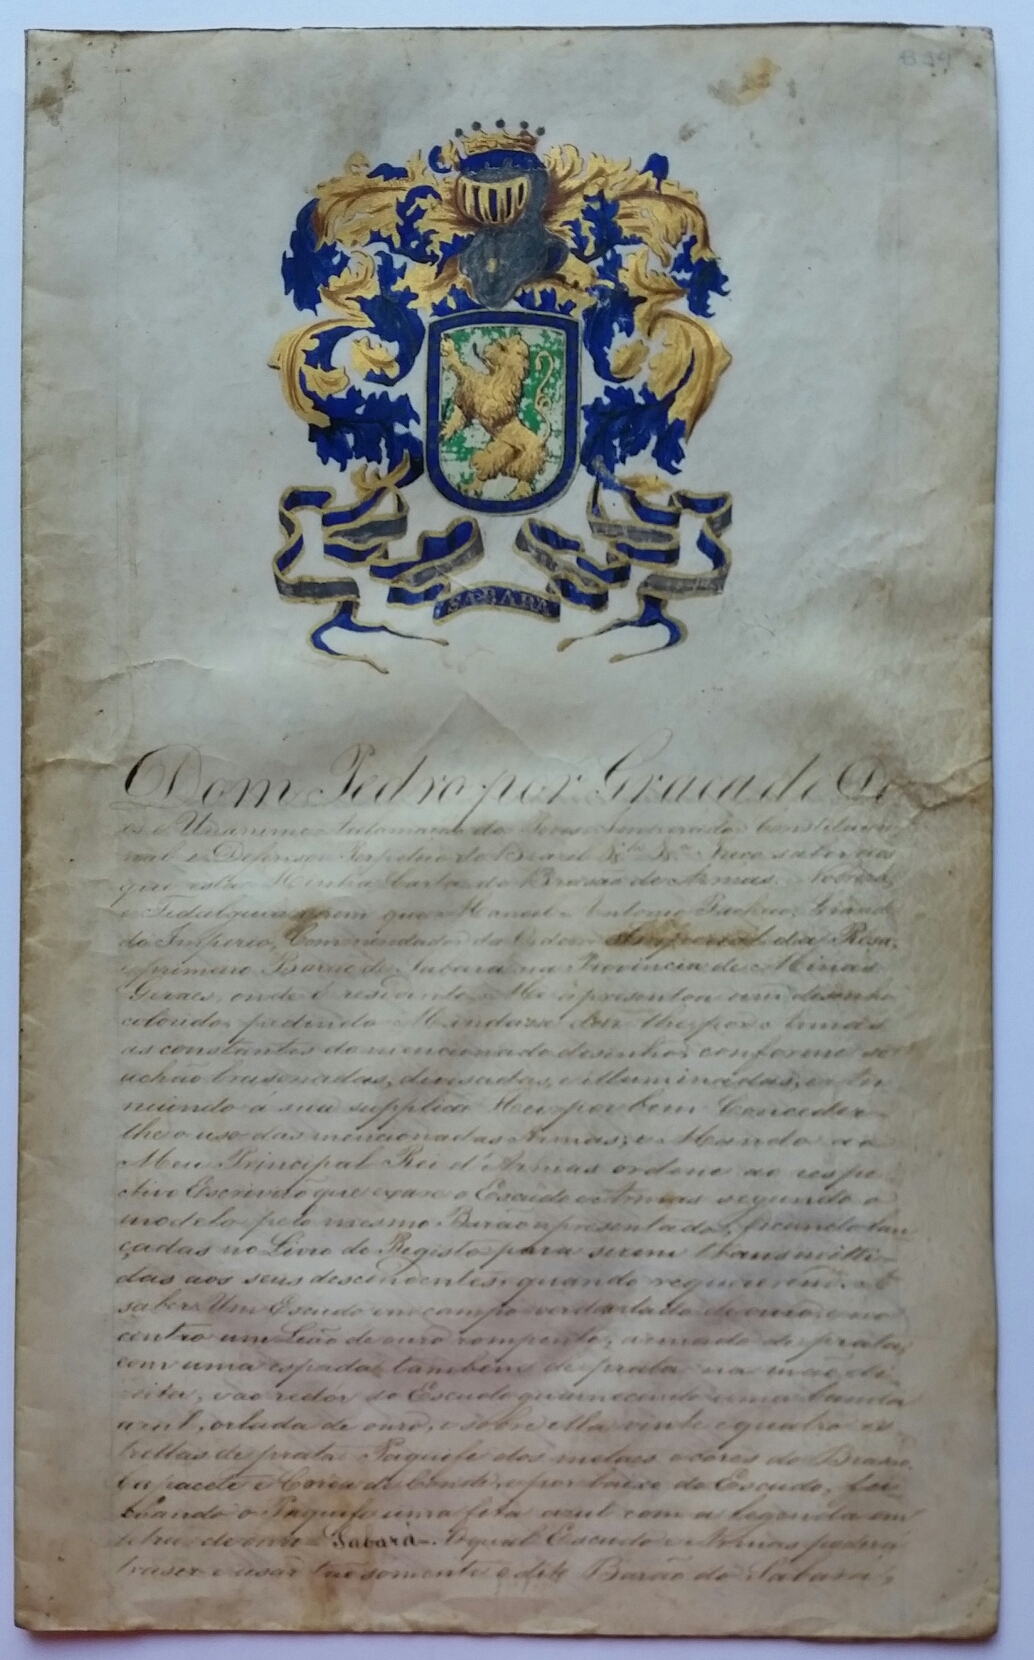 SABARÁ
Dom Pedro por Graça de De
os e Unanime Acclamação dos Povos Imperador Constitucio
nal e Defensor Perpetuo do Brazil &ª &ª Faço saber aos
que esta Minha Carta de Brasão de Armas, Nobreza
e Fidalguia virem que Manoel Antonio Pacheco, Grande
do Imperio, Commendador da Ordem Imperial da Rosa,
e primeiro Barão de Sabará na Provincia de Minas
Geraes, onde é residente, Me apresentou um desenho
colorido, pedindo Mandasse dar-lhe por Armas
as constantes do mencionado desenho, conforme se
achão brasonadas, divisadas, e illuminadas, e atten
dendo á sua supplica Hei por bem Conceder-
lhe o uso das mencionadas Armas; e Mando ao
Meu Principal Rei d'Armas ordene ao respe
ctivo Escrivão que exare o Escudo e Armas segundo o
modelo pelo mesmo Barão apresentado, ficando lan
çadas no Livro do Registo para serem transmitti-
das aos seus descendentes, quando requererem. A
saber: Um Escudo em campo verde orlado de ouro, e no
centro um Leão de ouro rompente, armado de prata,
com uma espada tambem de prata na mão di-
reita, e ao redor do Escudo guarnecendo uma banda
azul, orlada de ouro, e sobre ella vinte e quatro es
trellas de prata. Paquife dos metaes e cores do Brasão.
Capacete e Coroa de Conde, e por baixo do Escudo, fei-
chando o Paquife uma fita azul com a legenda em
letras de ouro - Sabará -. O qual Escudo e Armas poderá
traser e usar tão somente o dito Barão de Sabará,